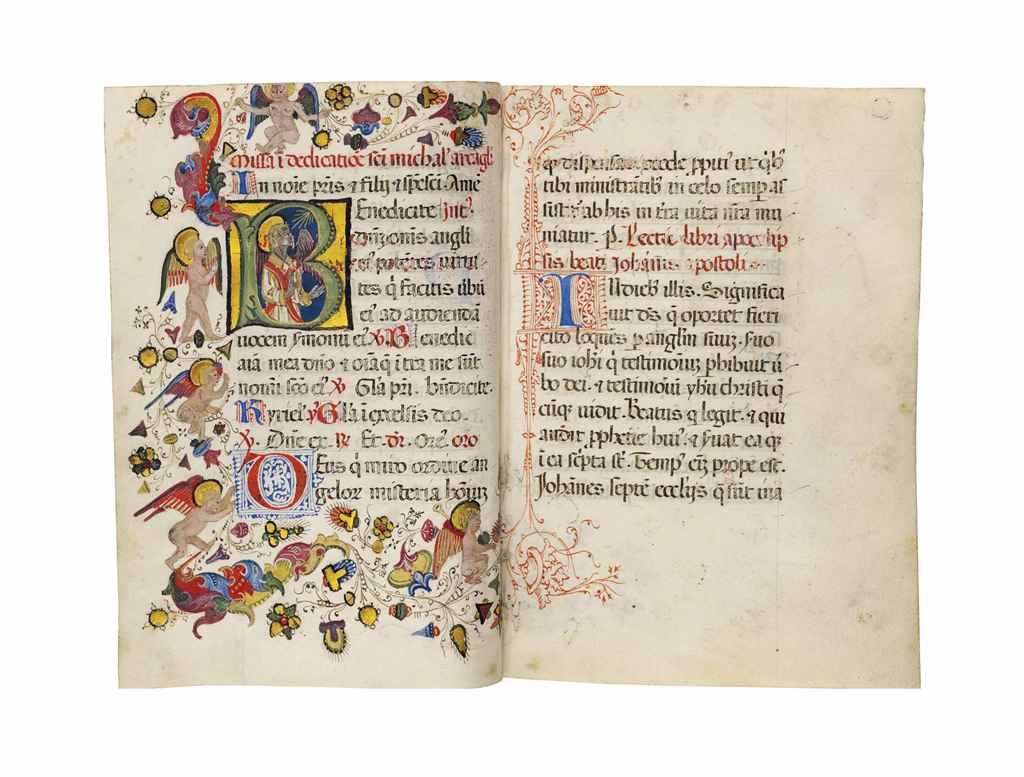 Missa i dedicatiõe scĩ michal' arcãgli
In noĩe pr̃is & filij & sp̃s sci Amẽ
Benedicite
dñm om̃s angli
ei' potẽtes uirtu
tes q̃ facitis ubũ
ei' ad audiendã
uocem sermonũ ei' ℣ Benedic
aĩa mea dño & oĩa q̃ i tra me sũt
noĩni scõ ei' ℣ Gl̃a pr̃i. bñdicite.
Kyriel' ℣ Gl̃a i excelsis deo.
℣. Dñe ex. ℟ Et. Or̃e. oro
Deus q̃ miro ordine an
gelor misteria hoĩuz
q dispensas cõcede ppiti' ut q̃b'
tibi ministrãtib' in celo semp as
sistit' ab his in tr̃a uita nr̃a mu
niatur. P. Lectio libri apocalip
sis beati Johãnis apostoli
In dieb' illis. Significa
uit dñs q̃ oportet fieri
cito loques p anglm suuz. suo
suo iohĩ q̃ testimoniuz phibuit ũ
bo dei. & testimoniũ yhu christi q̃
cũqz uidit. Beatus q legit. & qui
audit pphetie hui'. & s̃uat ea q̃
i ea sc̃pta sũt. Temp' eĩz prope est.
Johãnes septẽ eccliis q̃ sũt in a